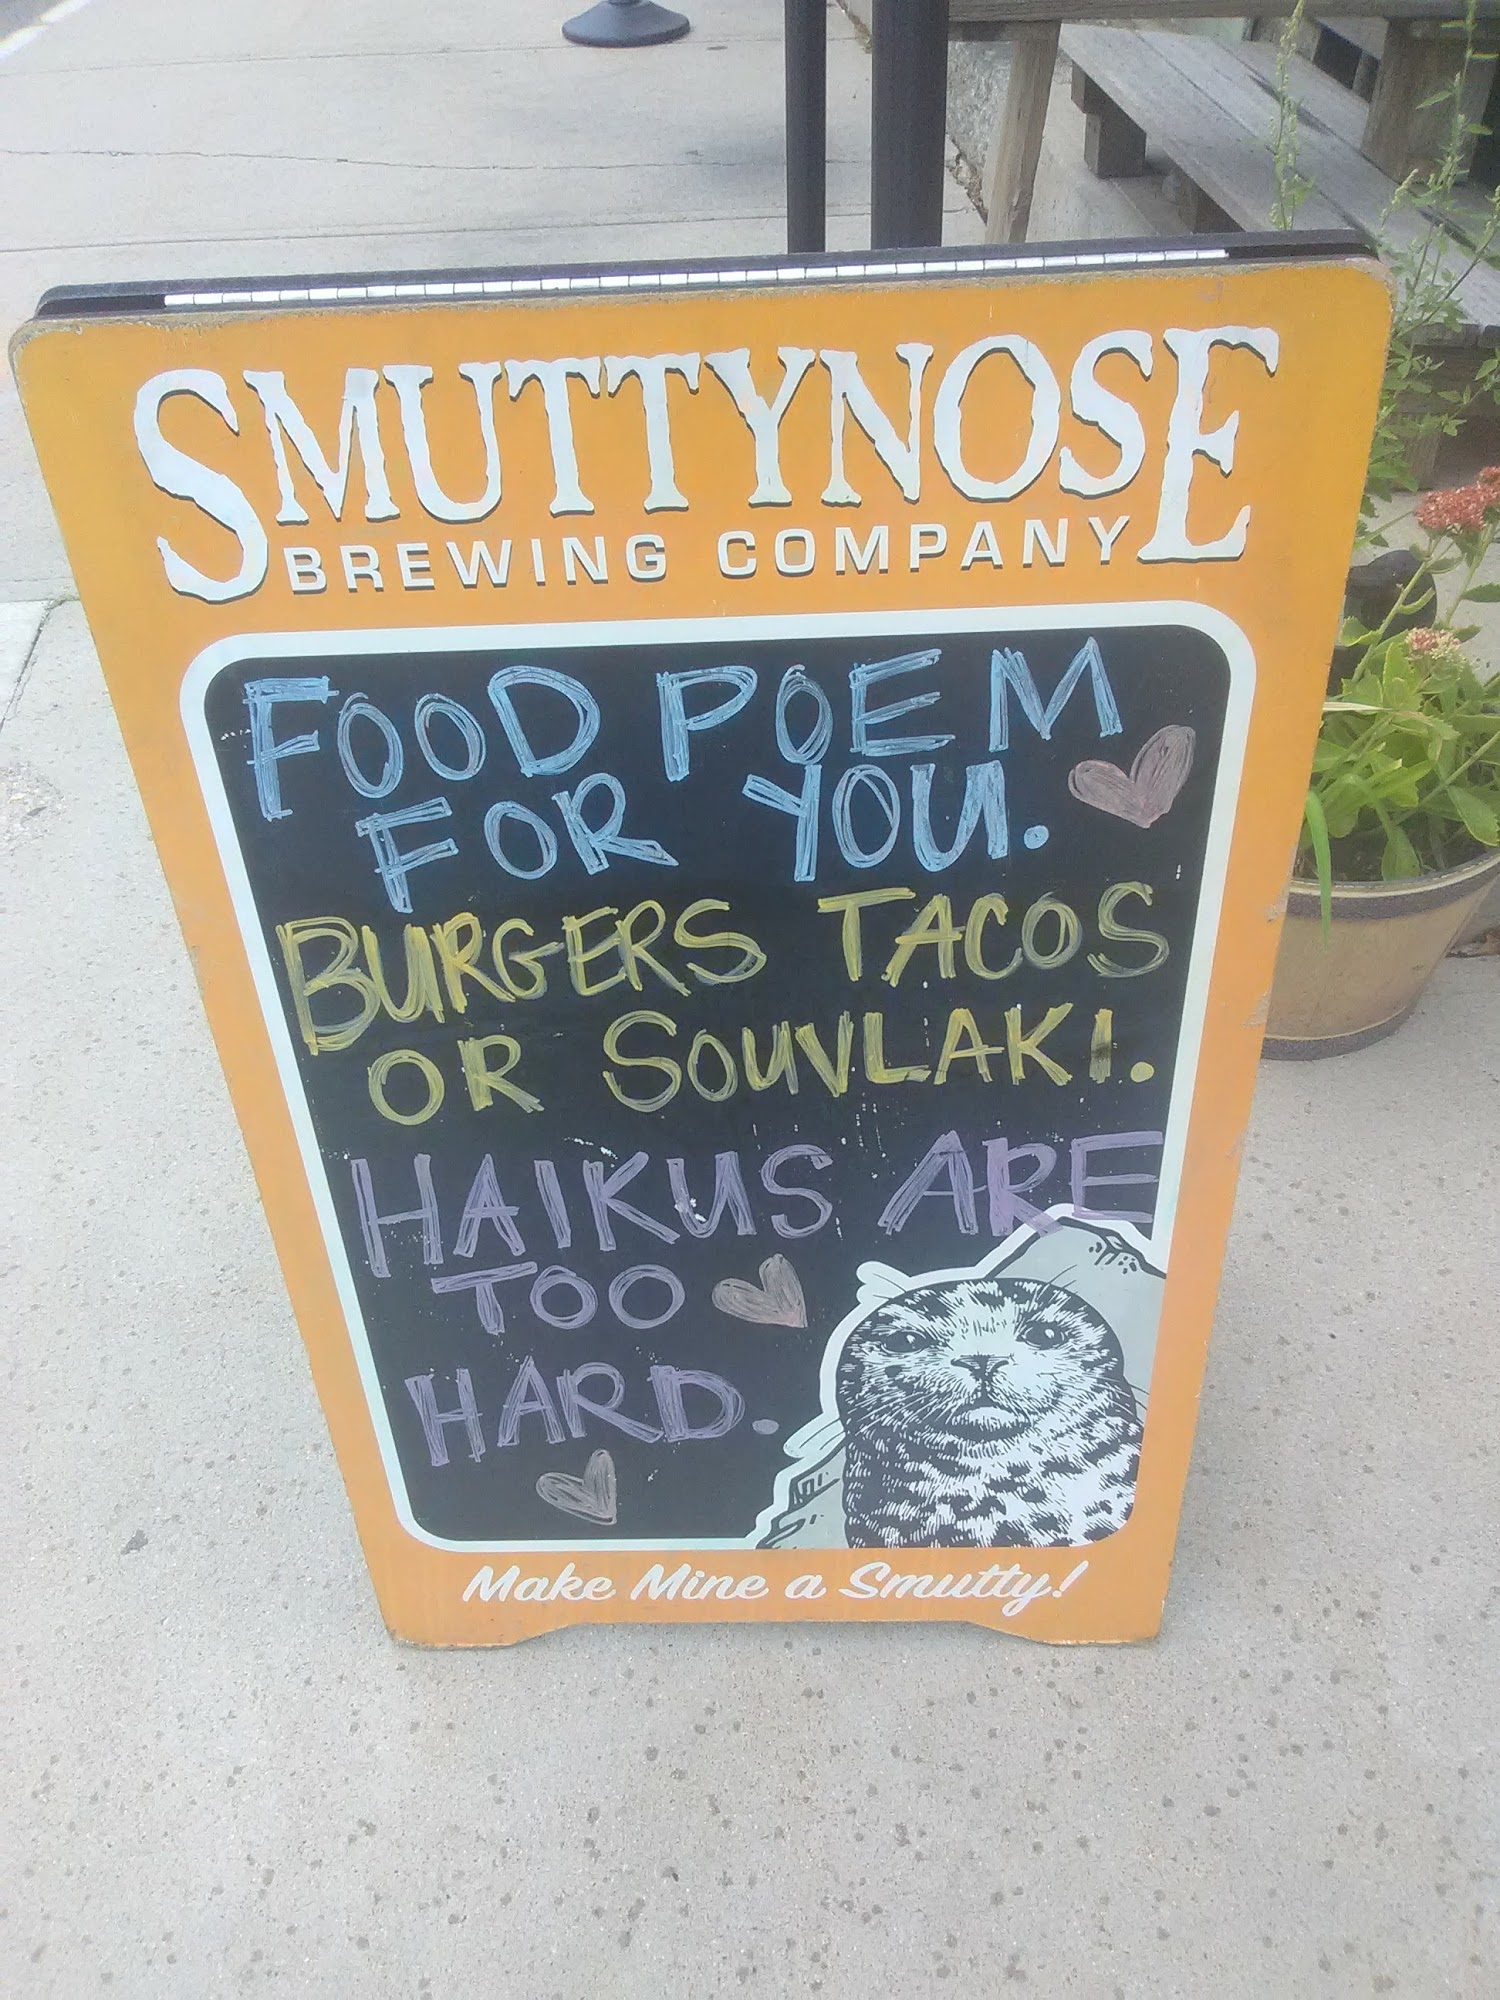 SMUTTYNOSE
BREWING COMPANY
FOOD POEM
FOR YOU.
BURGERS TACOS
OR SOUVLAKI.
HAIKUS ARE
TOO
HARD.
Make Mine a Smutty!